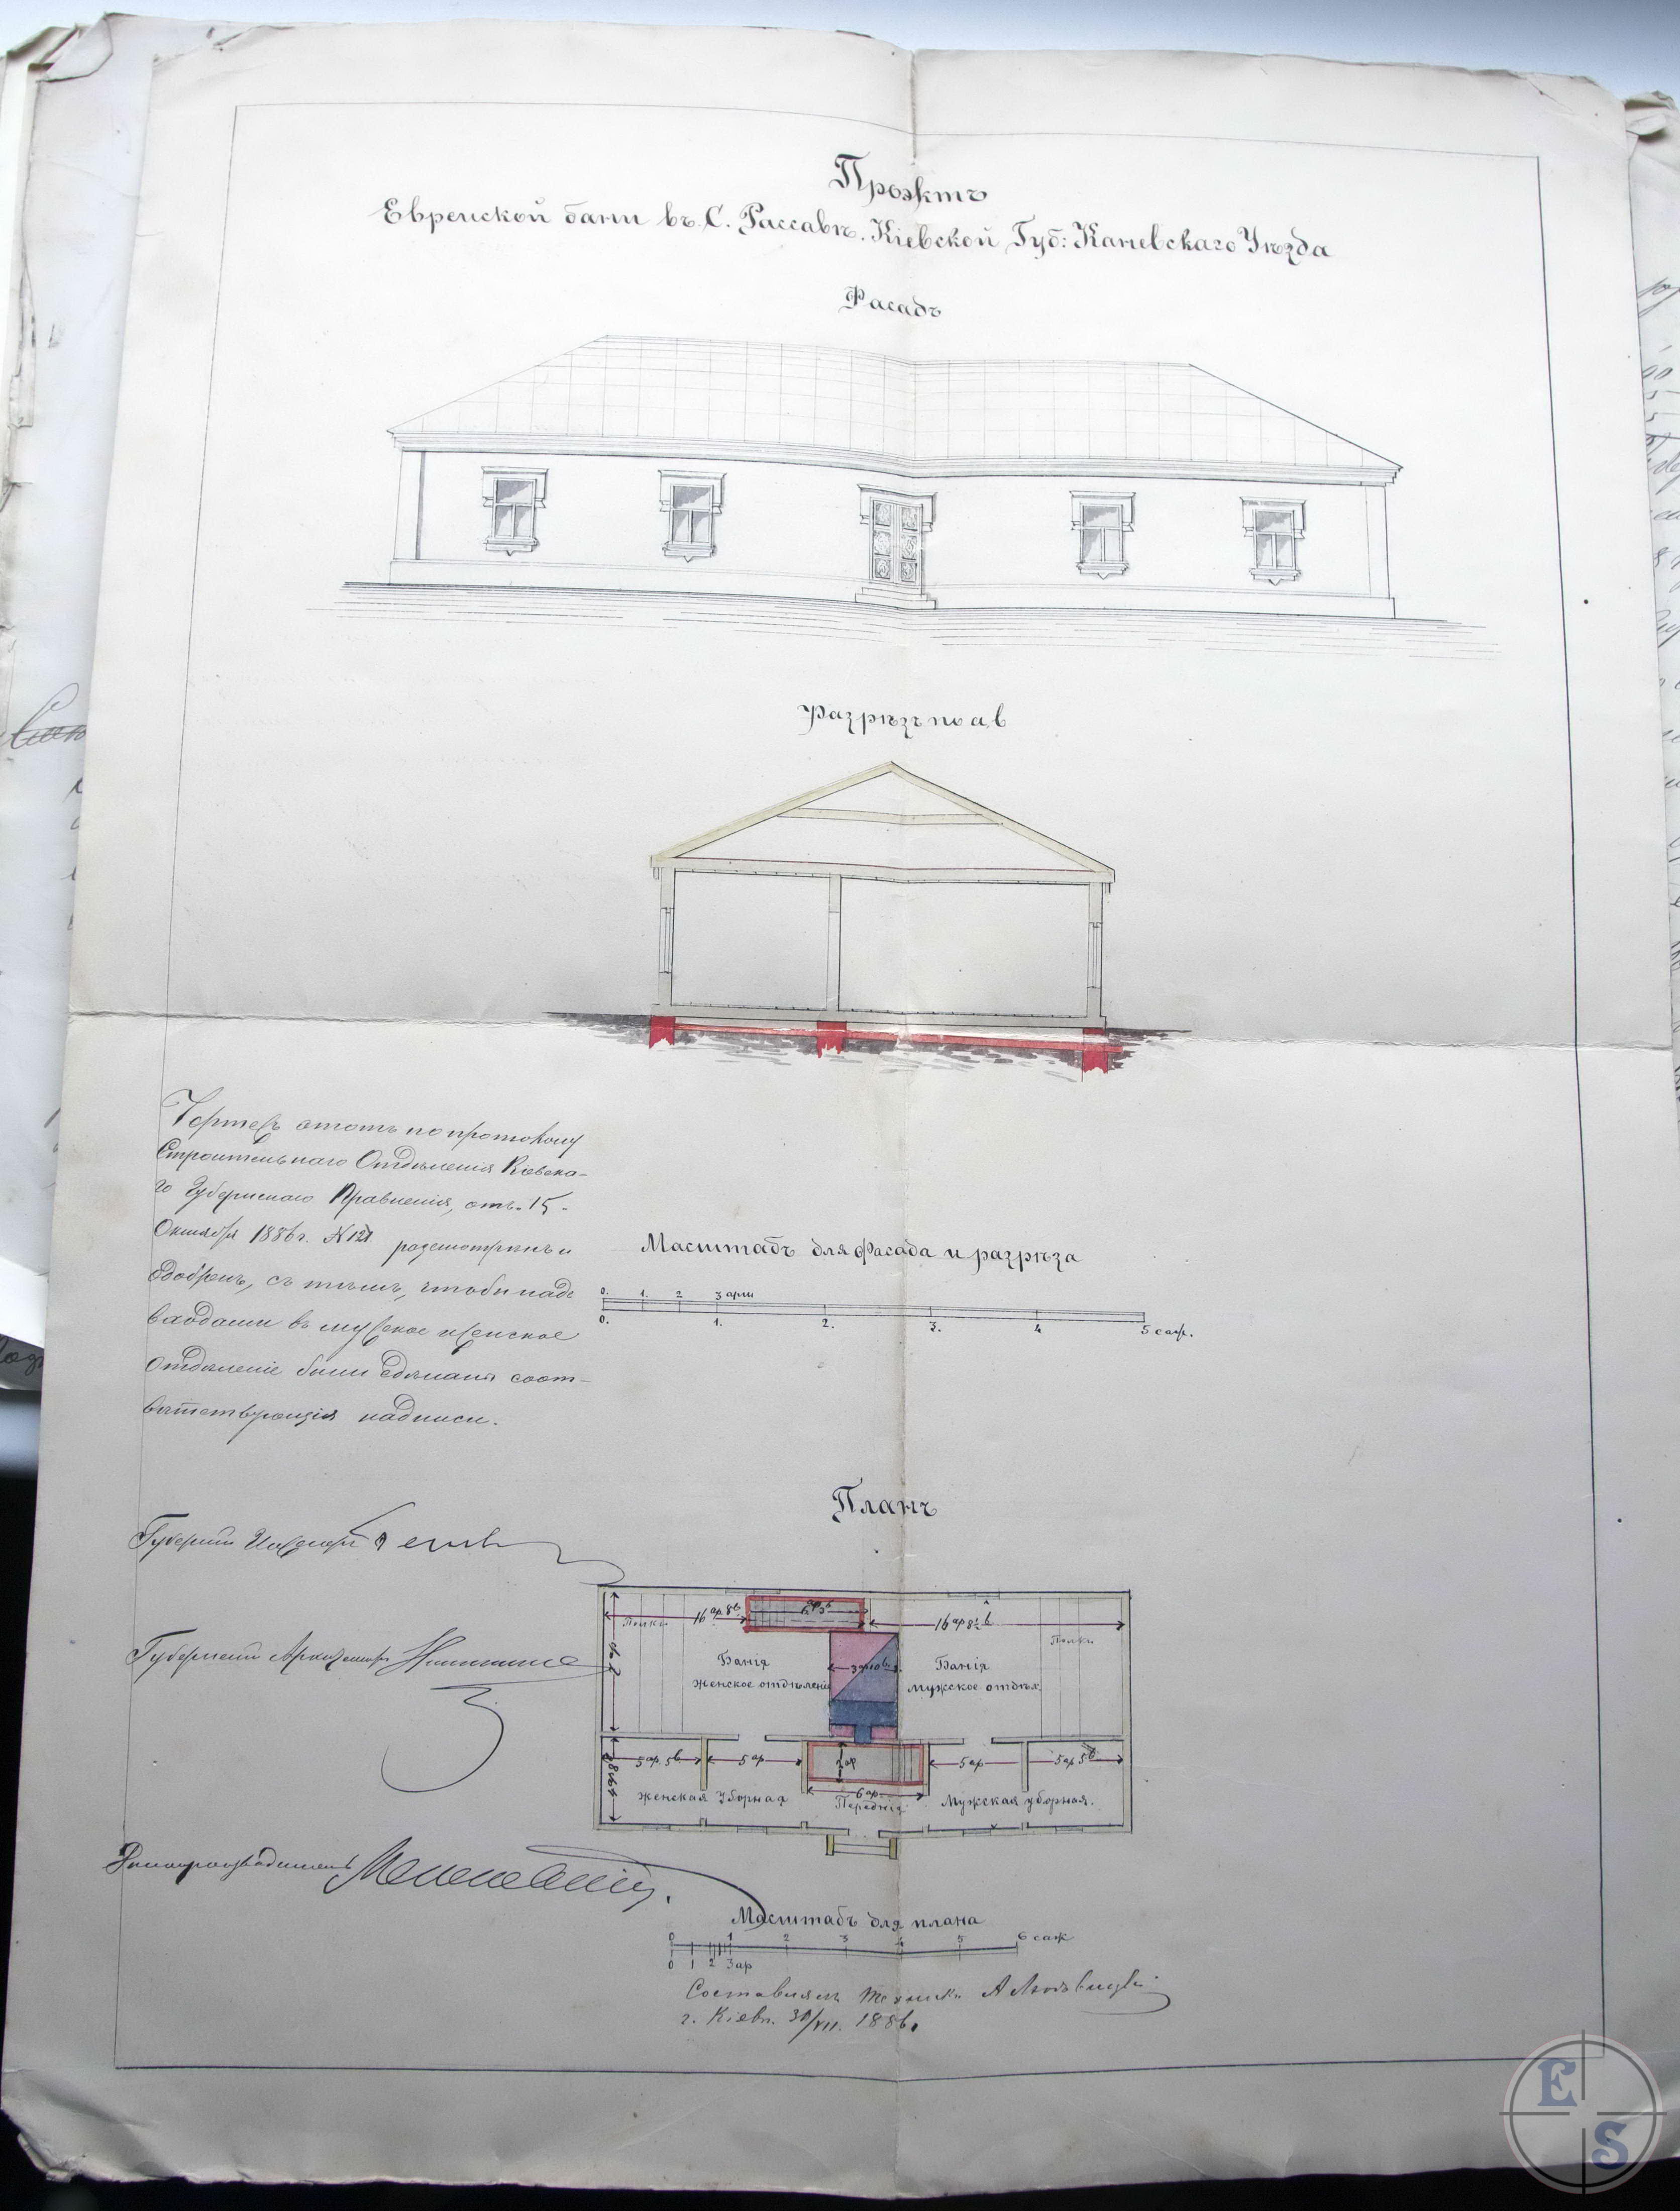 Проэктъ
Еврейской бани въ С. Рассавѣ. Кіевской Губ: Каневскаго Уѣзда
Фасадъ
Разрѣзъ по ав
Чертежъ этотъ по протоколу
Строительнаго Отдѣленія Кіевска-
го Губернскаго Правленія, отъ 15-
Октября 1886 г. № 121 разсмотрѣнъ и
одобренъ, съ тѣмъ, чтобы надъ
входами въ мужское и женское
Отдѣленіе были сдѣланы соот-
вѣтствующія надписи.
Масштабъ для фасада и разрѣза
0. 1. 2 3 арш
0. 1. 2. 3. 4 5 саж.
Планъ
Губернскій Инженеръ
Губернскій Архитекторъ
Дѣлопроизводитель
Полки 16 ар 8 в 16 ар 8½ в Полки
Банія
женское отдѣленіе
3 ар 10 в
Банія
мужское отдѣл.
5 ар 5 в 5 ар 2 ар 5 ар 5 ар 5 в
6 ар
женская уборная Передняя Мужская уборная.
Масштабъ для плана
0 1 2 3 4 5 6 саж
0 1 2 3 ар
Составлялъ техникъ
г. Кіевъ. 30/VII. 1886.
E
S